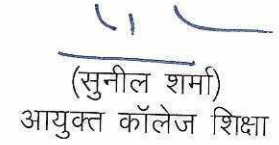 (सुनील शर्मा)
आयुक्त कॉलेज शिक्षा